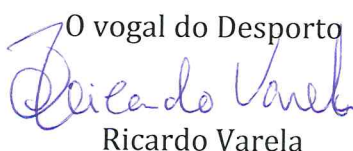 O vogal do Desporto
Ricardo Varela
Ricardo Varela